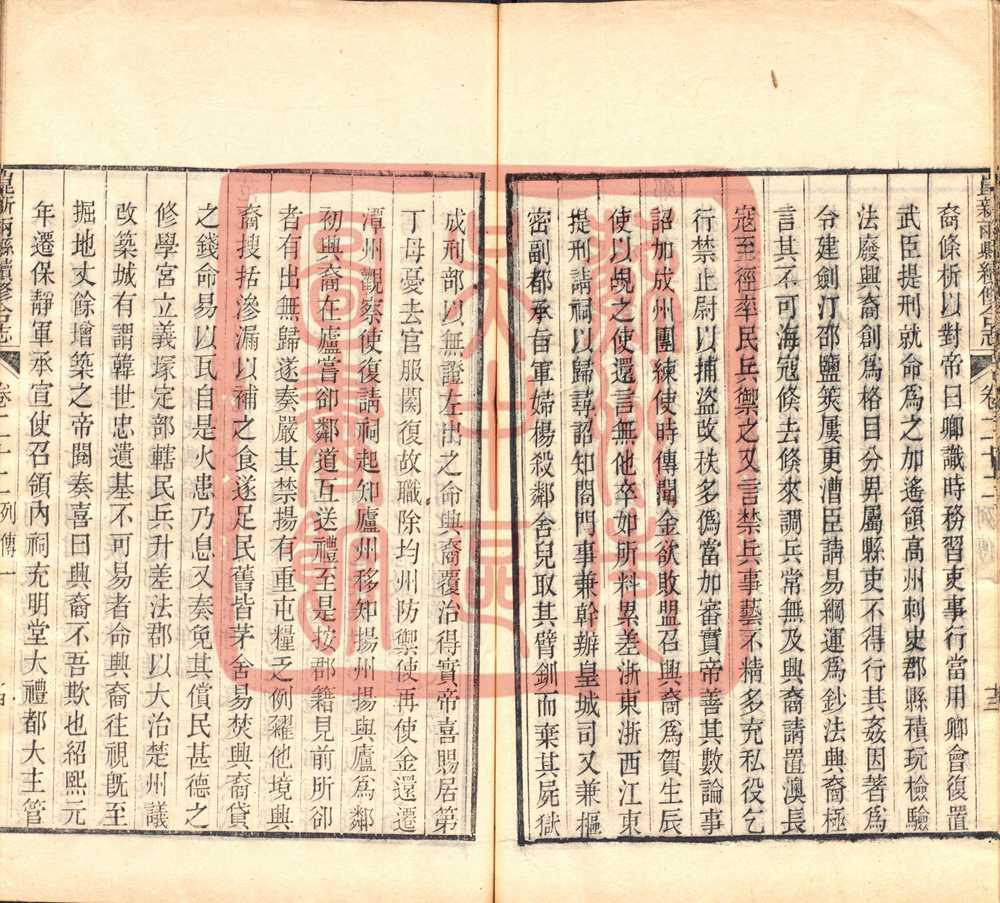 裔條析以對帝曰卿識時務習吏事行當用卿會復置
武臣提刑就命爲之加遙領高州刺史郡縣積玩檢驗
法廢興裔創爲格目分畀屬縣吏不得行其姦因著爲
令建劍汀邵鹽筴屢更漕臣請易綱運爲鈔法興裔極
言其不可海寇倏去倏來調兵常無及興裔請置澳長
寇至徑率民兵禦之又言禁兵事藝不精多充私役乞
行禁止尉以捕盜改秩多僞當加審實帝善其數論事
詔加成州團練使時傳聞金欲敗盟召興裔爲賀生辰
使以覘之使還言無他卒如所料累差浙東浙西江東
提刑請祠以歸尋詔知閤門事兼幹辦皇城司又兼樞
密副都承旨軍婦楊殺鄰舍兒取其臂釧而棄其屍獄
成刑部以無證左出之命興裔覆治得實帝喜賜居第
丁母憂去官服闋復故職除均州防禦使再使金還遷
潭州觀察使復請祠起知廬州移知揚州揚與廬爲鄰
初興裔在廬嘗卻鄰道互送禮至是按郡籍見前所卻
者有出無歸遂奏嚴其禁揚有重屯糧乏例糴他境興
裔搜括滲漏以補之食遂足民舊皆茅舍易焚興裔貸
之錢命易以瓦自是火患乃息又奏免其償民甚德之
修學宮立義塚定部轄民兵升差法郡以大治楚州議
改築城有謂韓世忠遺基不可易者命興裔往視旣至
掘地丈餘增築之帝閱奏喜曰興裔不吾欺也紹熙元
年遷保靜軍承宣使召領內祠充明堂大禮都大主管
卷二十二列傳一